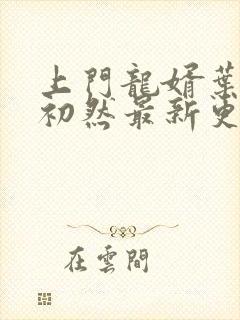 上門龍婿葉
初然最新更
在雲間